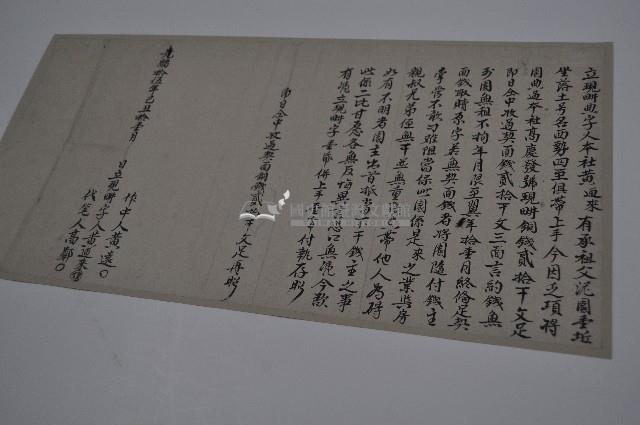 立現畊典字人本社黃通來有承祖父汜園壹坵
坐落土号名西勢四至俱帶上手今因乏項將
園典過本社高慶發號現畊銅錢貳拾千文足
即日仝中收過契面錢貳拾千文三面言約錢無
利園無租不拘年月限至翼年拾壹月終俻足契
面錢取贖原字若無契面錢者將園隨付錢主
掌管不敢刁難阻當保此園係是來之業與房
親叔兄弟侄無干並無重 帶他人為碍
如有不明者園主出首抵當 干錢主之事
此係二比甘愿各無反悔異 口無憑今欲
有憑立現畊字壹帋併上手 付執存炤
即日仝中收過契面銅錢貳拾千文足再炤
光緒拾 年己 拾壹月 日立現畊字人黃通來
作中人黃選
代筆人高